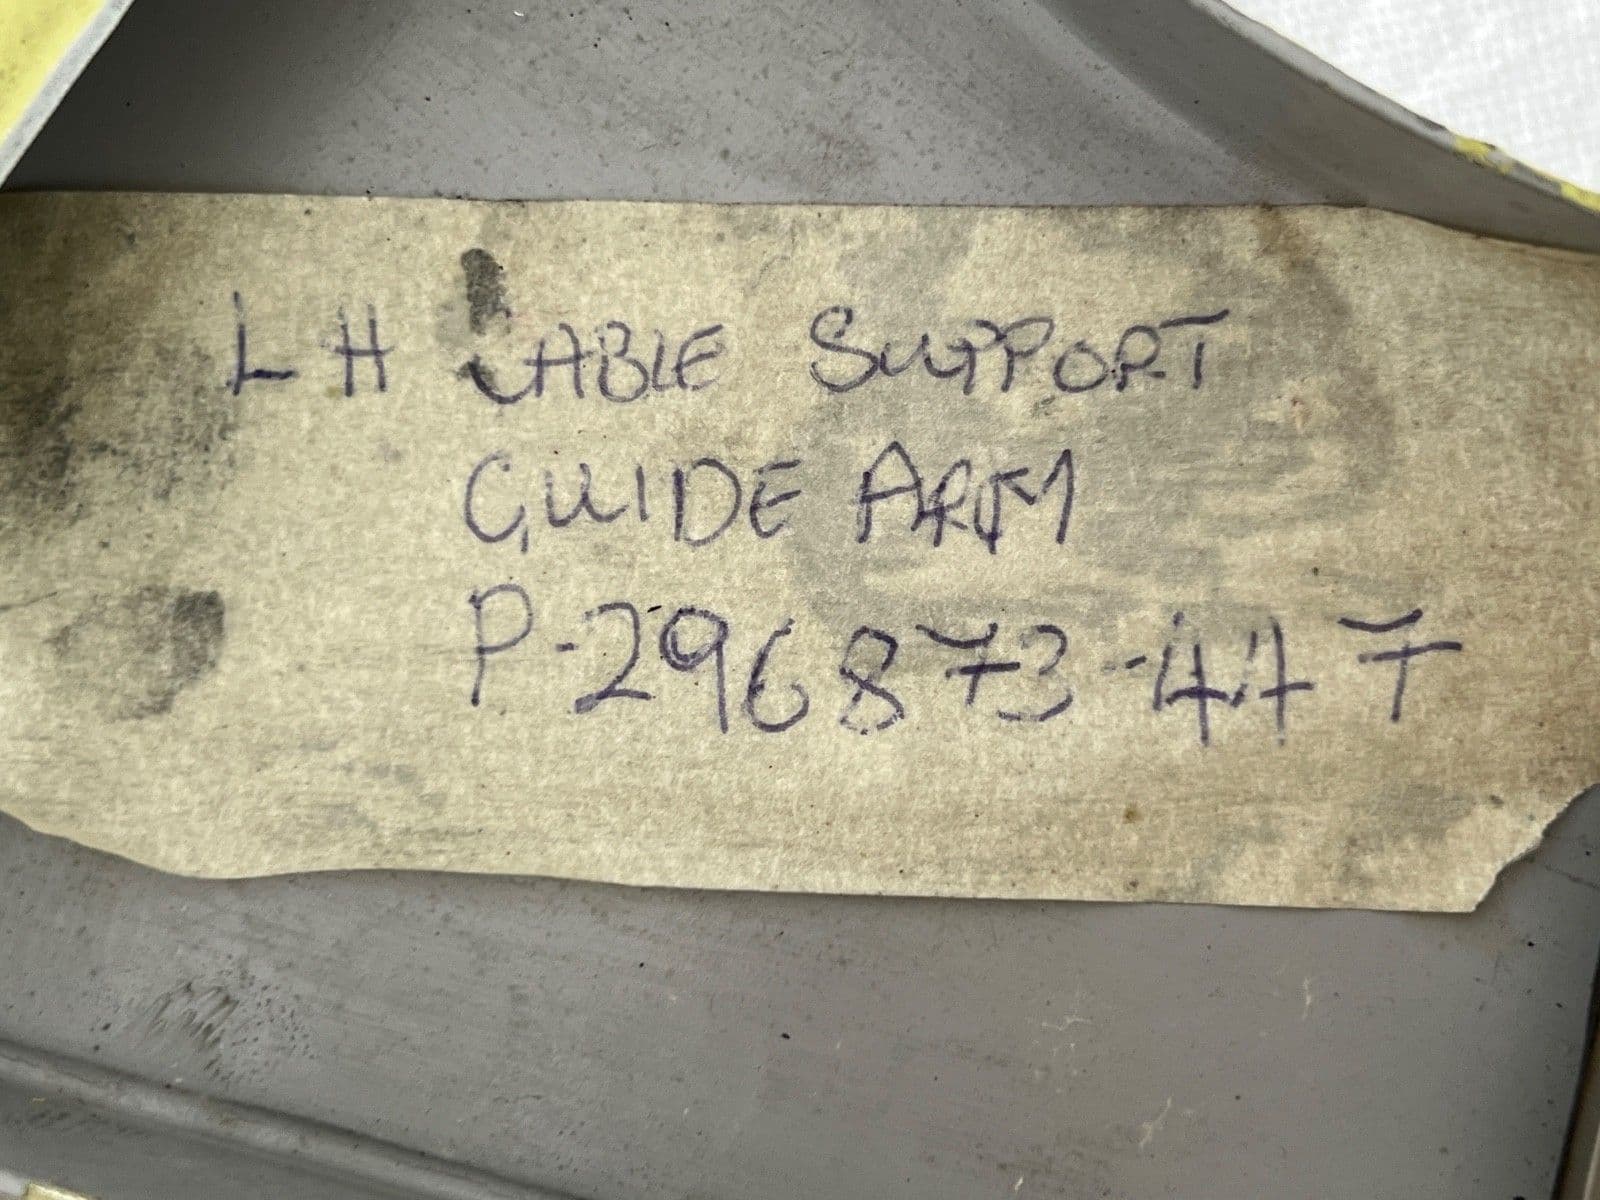 LH CABLE SUPPORT
GUIDE ARM
P-296873-447